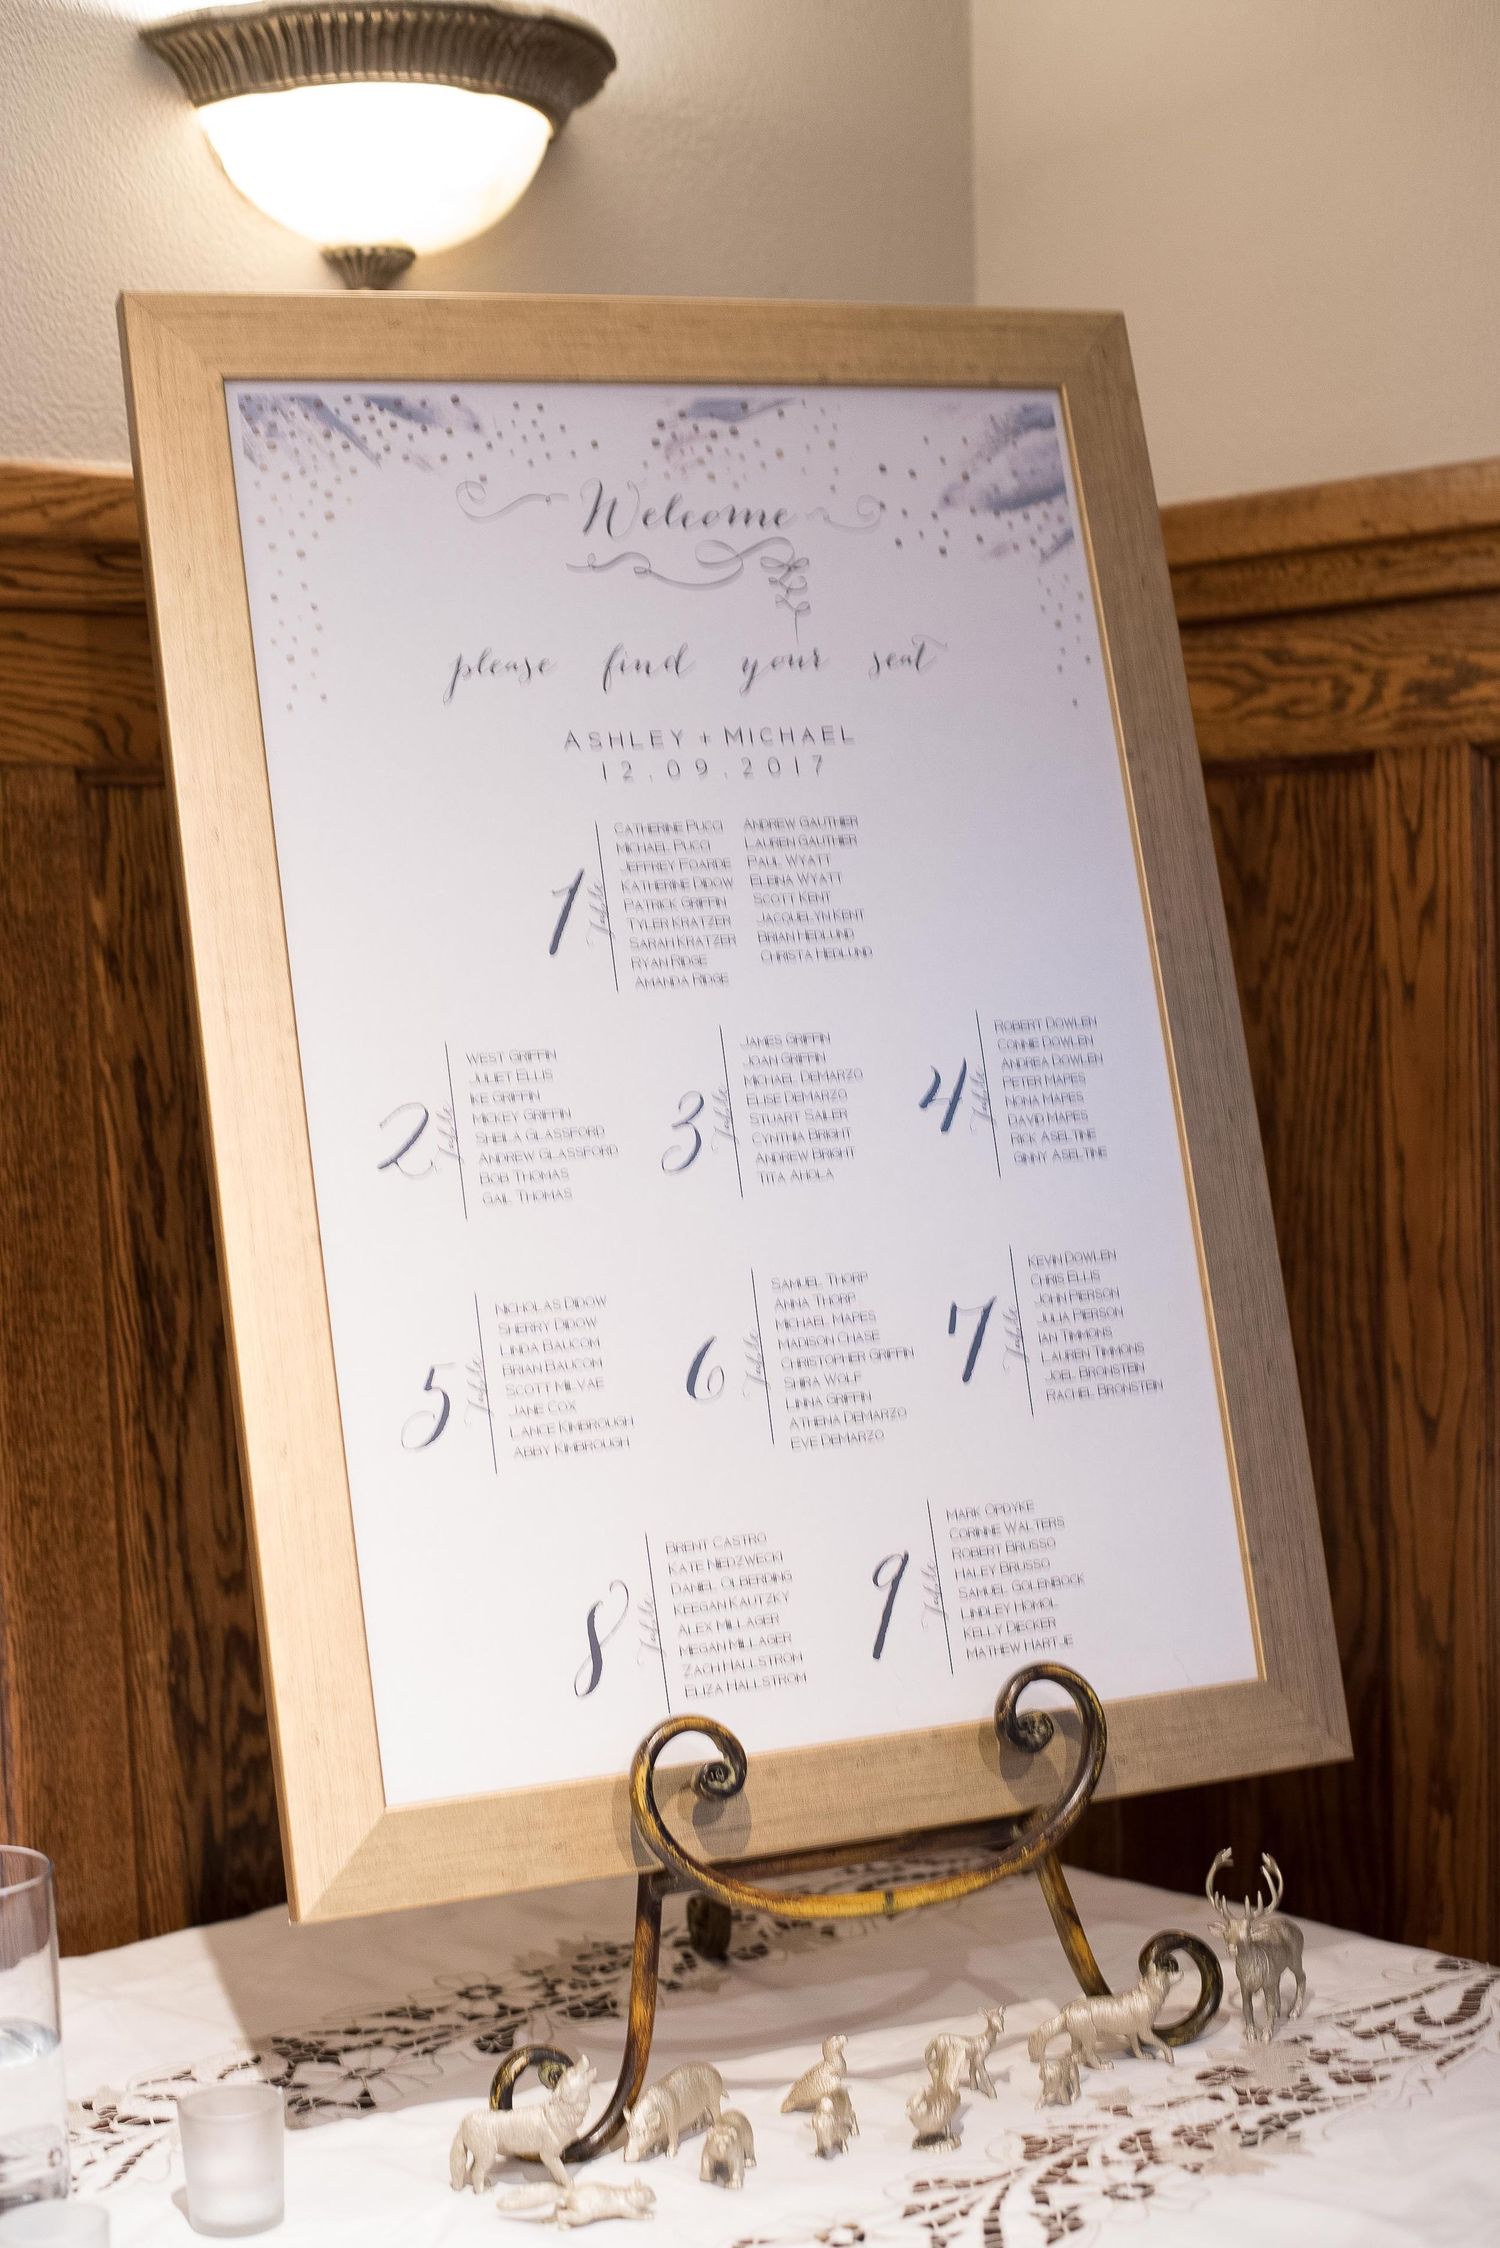 Welcome
please find your seat
ASHLEY + MICHAEL
12.09.2017
1 Table
CATHERINE PUCCI
MICHAEL PUCCI
JEFFREY FOARDE
KATHERINE DIDOW
PATRICK GRIFFIN
TYLER KRATZER
SARAH KRATZER
RYAN RIDGE
AMANDA RIDGE
ANDREW GAUTHIER
LAUREN GAUTHIER
PAUL WYATT
ELEINA WYATT
SCOTT KENT
JACQUELYN KENT
BRIAN HEDLUND
CHRISTA HEDLUND
2 Table
WEST GRIFFIN
JULIET ELLIS
IKE GRIFFIN
MICKEY GRIFFIN
SHEILA GLASSFORD
ANDREW GLASSFORD
BOB THOMAS
GAIL THOMAS
3 Table
JAMES GRIFFIN
JOAN GRIFFIN
MICHAEL DEMARZO
ELISE DEMARZO
STUART SAILER
CYNTHIA BRIGHT
ANDREW BRIGHT
TITA AHOLA
4 Table
ROBERT DOWLEN
CONNIE DOWLEN
ANDREA DOWLEN
PETER MAPES
NONA MAPES
DAVID MAPES
RICK ASELTINE
GINNY ASELTINE
5 Table
NICHOLAS DIDOW
SHERRY DIDOW
LINDA BAUCOM
BRIAN BAUCOM
SCOTT MILVAE
JANE COX
LANCE KIMBROUGH
ABBY KIMBROUGH
6 Table
SAMUEL THORP
ANNA THORP
MICHAEL MAPES
MADISON CHASE
CHRISTOPHER GRIFFIN
SHIRA WOLF
LINNA GRIFFIN
ATHENA DEMARZO
EVE DEMARZO
7 Table
KEVIN DOWLEN
CHRIS ELLIS
JOHN PIERSON
JULIA PIERSON
IAN TIMMONS
LAUREN TIMMONS
JOEL BRONSTEIN
RACHEL BRONSTEIN
8 Table
BRENT CASTRO
KATE NIEDZWECKI
DANIEL OLBERDING
KEEGAN KAUTZKY
ALEX MILLAGER
MEGAN MILLAGER
ZACH HALLSTROM
ELIZA HALLSTROM
9 Table
MARK OPDYKE
CORINNE WALTERS
ROBERT BRUSSO
HALEY BRUSSO
SAMUEL GOLENBOCK
LINDLEY HOMOL
KELLY DIECKER
MATHEW HARTJE